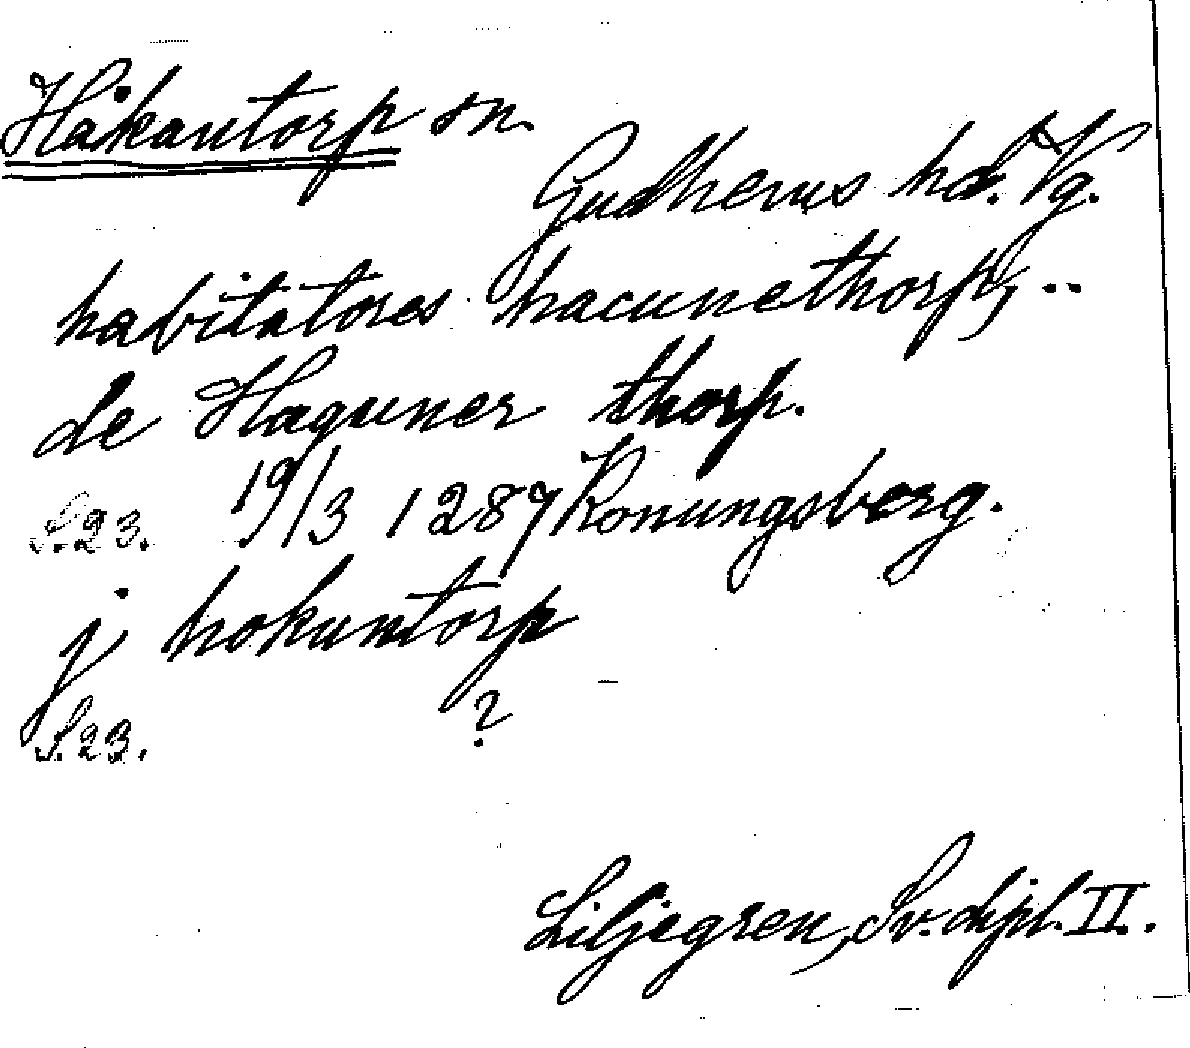 Håkantorp sn.
Gudhems hd. Vg.
habitatores hacunethorp, ..
de Haguner thorp.
S. 23. 19/3 1287 Konungsberg.
j hokuntorp
S. 23. ?
Liljegren, Sv. dipl. II.